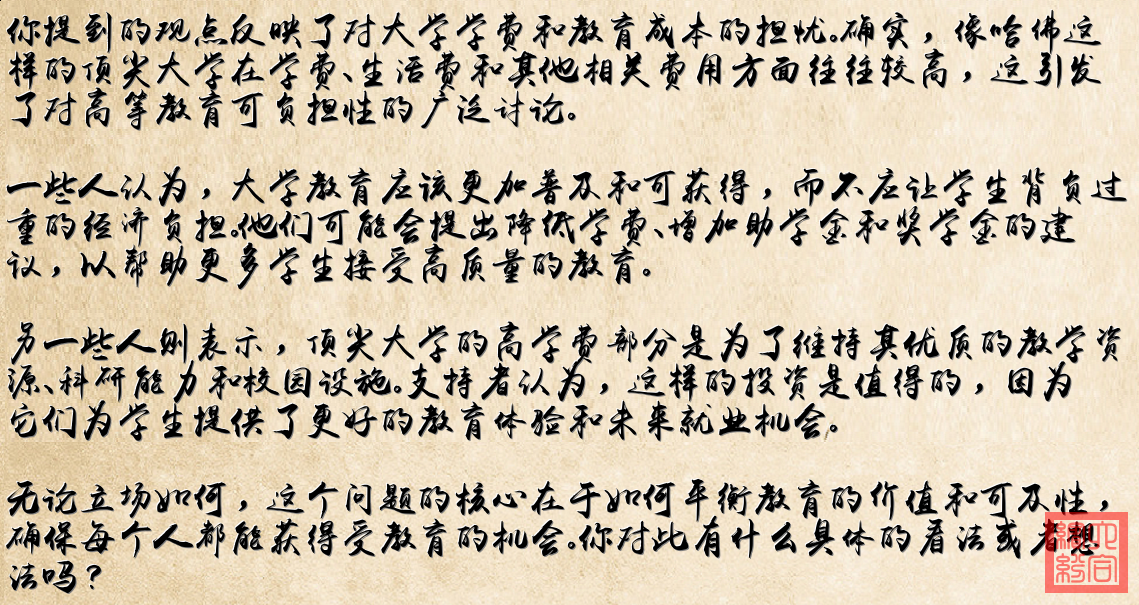 你提到的观点反映了对大学学费和教育成本的担忧。确实，像哈佛这
样的顶尖大学在学费、生活费和其他相关费用方面往往较高，这引发
了对高等教育可负担性的广泛讨论。
一些人认为，大学教育应该更加普及和可获得，而不应让学生背负过
重的经济负担。他们可能会提出降低学费、增加助学金和奖学金的建
议，以帮助更多学生接受高质量的教育。
另一些人则表示，顶尖大学的高学费部分是为了维持其优质的教学资
源、科研能力和校园设施。支持者认为，这样的投资是值得的，因为
它们为学生提供了更好的教育体验和未来就业机会。
无论立场如何，这个问题的核心在于如何平衡教育的价值和可及性，
确保每个人都能获得受教育的机会。你对此有什么具体的看法或者想
法吗？